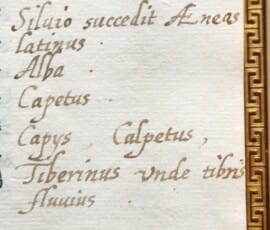 Siluio succedit Æneas
latinus .
Alba .
Capetus .
Capys Calpetus ,
Tiberinus vnde tibris
fluuius .